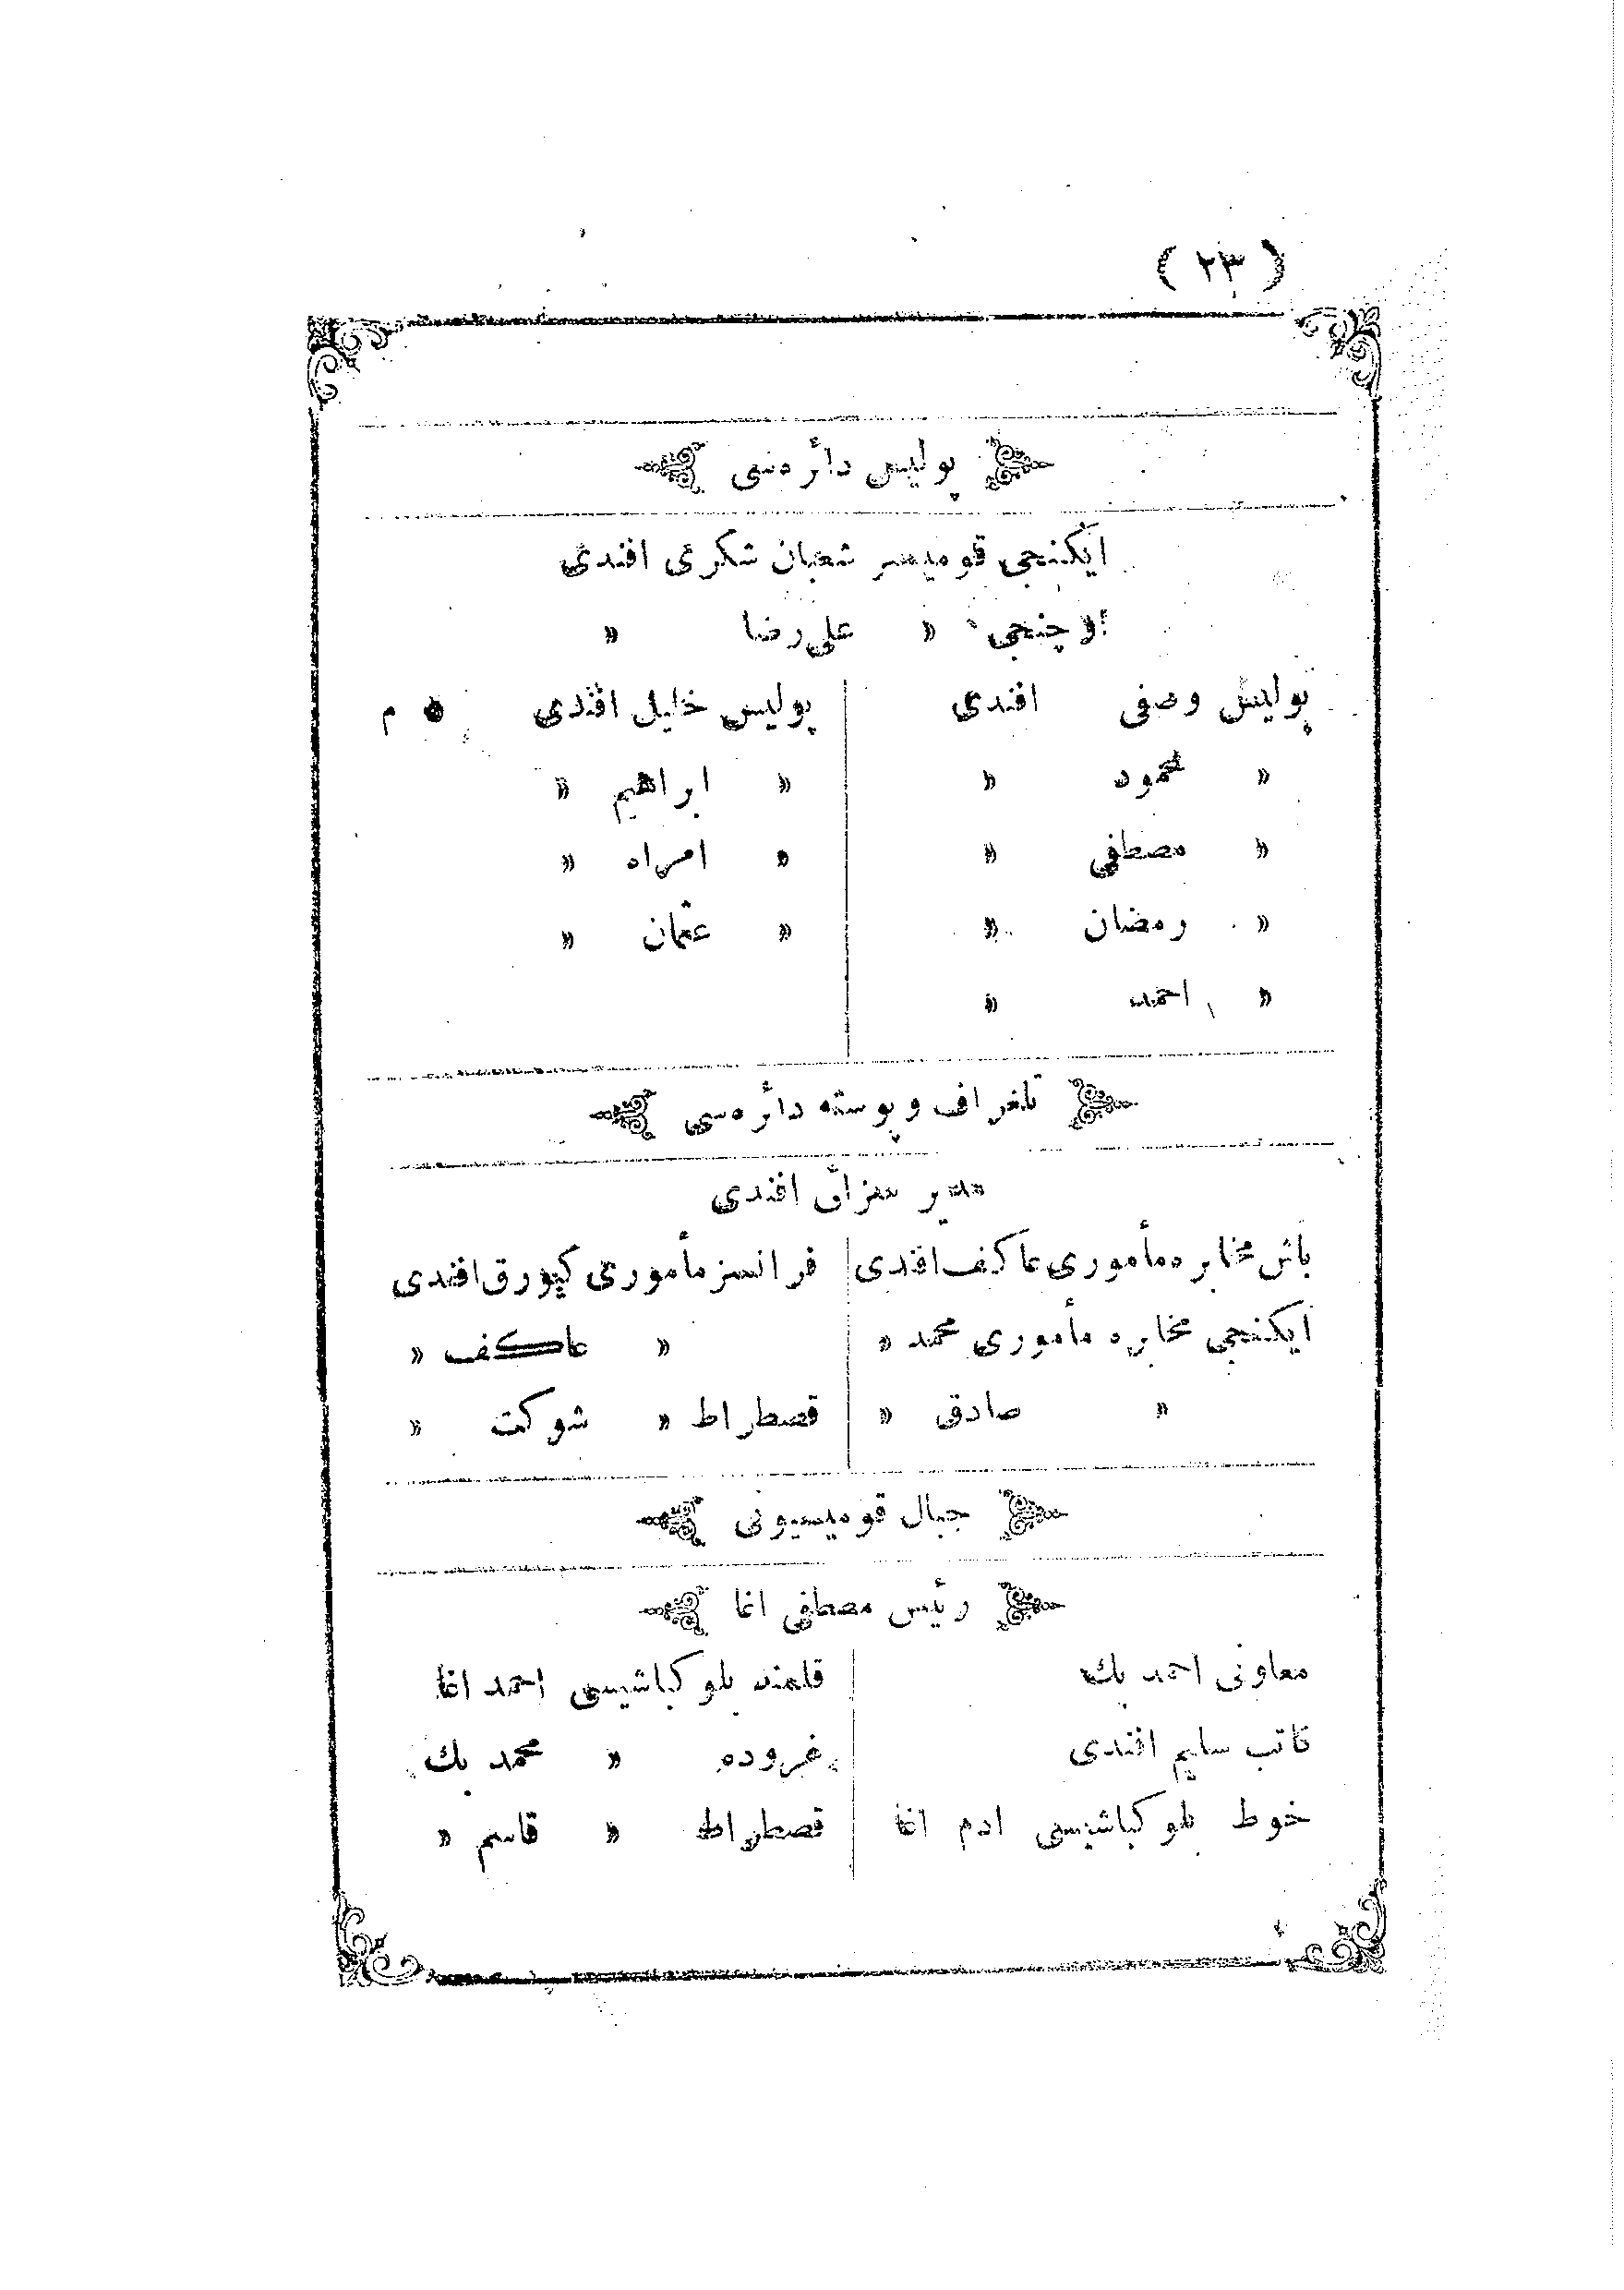 ( ٢٣ )
پوليس دائره‌سى
ايكنجى قوميسر شعبان شكرى افندى
اوچنجى » على رضا »
پوليس وصفى افندى
» محمود »
» مصطفى »
» رمضان »
» احمد »
پوليس خليل افندى م
» ابراهيم »
» امراه »
» عثمان »
تلغراف و پوسته دائره‌سى
مدير افندى
باش مخابره مأمورى عاكف افندى
ايكنجى مخابره مأمورى محمد »
» صادق »
فرانسز مأمورى كيورق افندى
» عاكف »
قصطراط » شوكت »
جبال قوميسيونى
رئيس مصطفى اغا
معاونى احمد بك
كاتب سليم افندى
خوط بلوكباشيسى ادم اغا
قلمند بلوكباشيسى احمد اغا
غروده » محمد بك
قصطراط » قاسم »